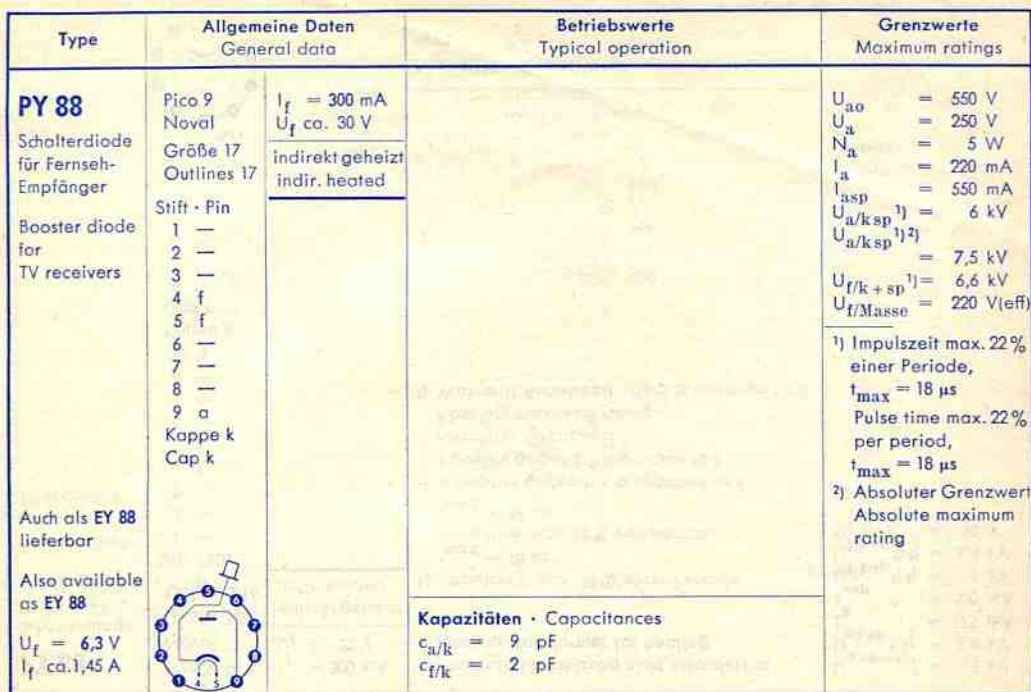 Type
Allgemeine Daten
General data
Betriebswerte
Typical operation
Grenzwerte
Maximum ratings
PY 88
Schalterdiode
für Fernseh-
Empfänger
Booster diode
for
TV receivers
Auch als EY 88
lieferbar
Also available
as EY 88
U_f = 6,3 V
I_f ca. 1,45 A
Pico 9
Noval
Größe 17
Outlines 17
Stift · Pin
1 —
2 —
3 —
4 f
5 f
6 —
7 —
8 —
9 a
Kappe k
Cap k
1 2 3 4 5 6 7 8 9
4 5
I_f = 300 mA
U_f ca. 30 V
indirekt geheizt
indir. heated
Kapazitäten · Capacitances
c_a/k = 9 pF
c_f/k = 2 pF
U_ao = 550 V
U_a = 250 V
N_a = 5 W
I_a = 220 mA
I_asp = 550 mA
U_a/k sp ¹) = 6 kV
U_a/k sp ¹) ²)
= 7,5 kV
U_f/k + sp ¹) = 6,6 kV
U_f/Masse = 220 V(eff)
¹) Impulszeit max. 22%
einer Periode,
t_max = 18 µs
Pulse time max. 22%
per period,
t_max = 18 µs
²) Absoluter Grenzwert
Absolute maximum
rating